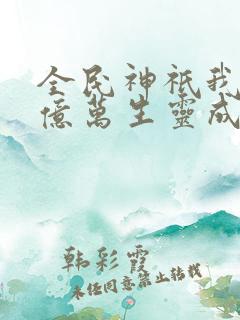 全民神祇我
億萬生靈成
韩彩霞
未经同意禁止转载